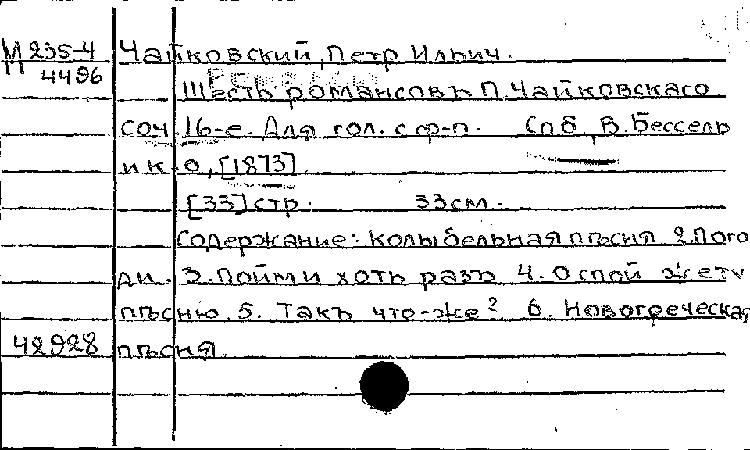 М 235-4 Чайковский, Петр Ильич.
М 4496
Шесть романсовъ П. Чайковскаго
соч 16-е. Для гол. с ф-п. Спб, В. Бессель
и к-о, [1873]
[33] стр. 33 см.
Содержание: Колыбельная пѣсня 2. Пого
ди. 3. Пойми хоть разъ 4. О спой же ту
пѣсню. 5. Такъ что-же? 6. Новогреческая
42928 пѣсня.